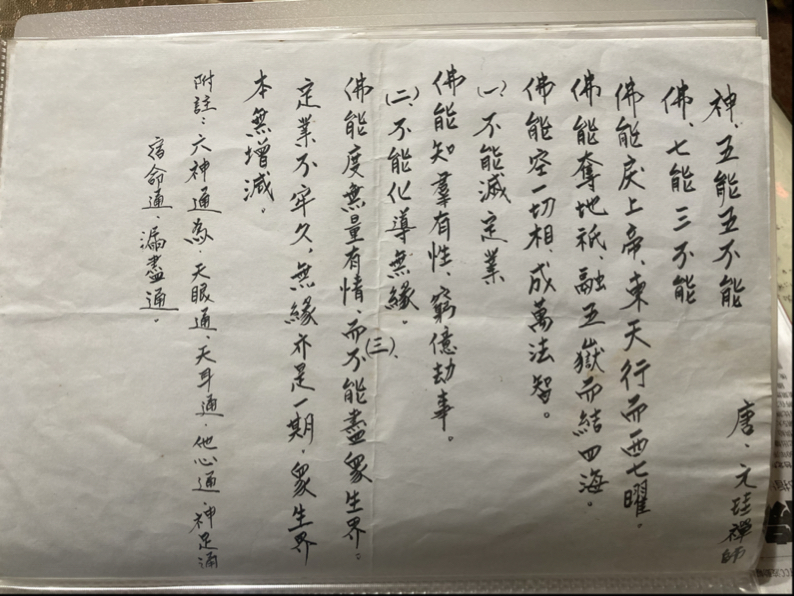 神、五能五不能
唐、元珪禪師
佛、七能三不能
佛能戾上帝、東天行而西七曜。
佛能奪地祇、融五嶽而結四海。
佛能空一切相、成萬法智。
㈠不能滅定業
佛能知羣有性、窮億劫事。
㈡不能化導無緣。
佛能度無量有情、㈢而不能盡衆生界。
定業不牢久、無緣亦是一期、衆生界
本無增減。
附註：六神通為、天眼通、天耳通、他心通、神足通
宿命通、漏盡通。